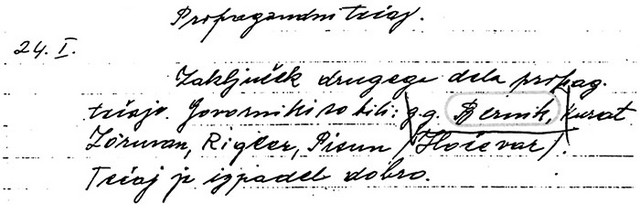 Propagandni tečaj.
24. I.
Zaključek drugega dela propag.
tečaja. Govorniki so bili: g.g. Bernik, kurat
Zorman, Rigler, Pisun (Hočevar).
Tečaj je izpadel dobro.